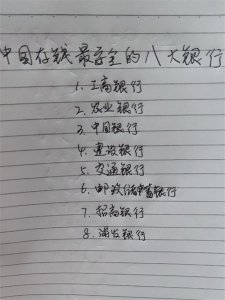 中国存钱最安全的八大银行
1、工商银行
2、农业银行
3、中国银行
4、建设银行
5、交通银行
6、邮政储蓄银行
7、招商银行
8、浦发银行